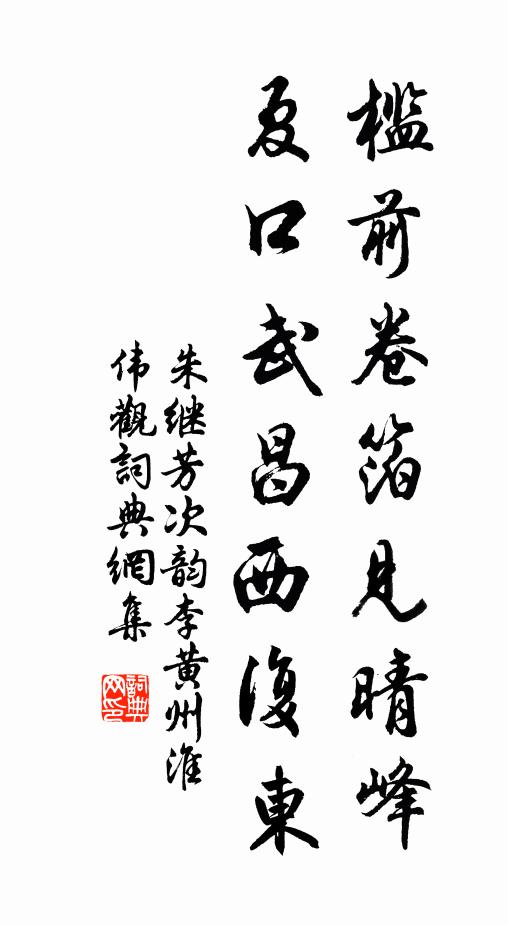 檻前卷箔見晴峰
夏口武昌西復東
朱继芳次韵李黄州淮
伟觀詞典網集
詞典網印